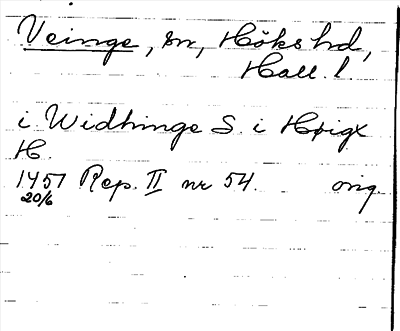 Veinge, sn, Höks hd,
Hall. l
i Widhinge S. i Høigx
H.
1457 Rep. II nr 54. orig.
20/6